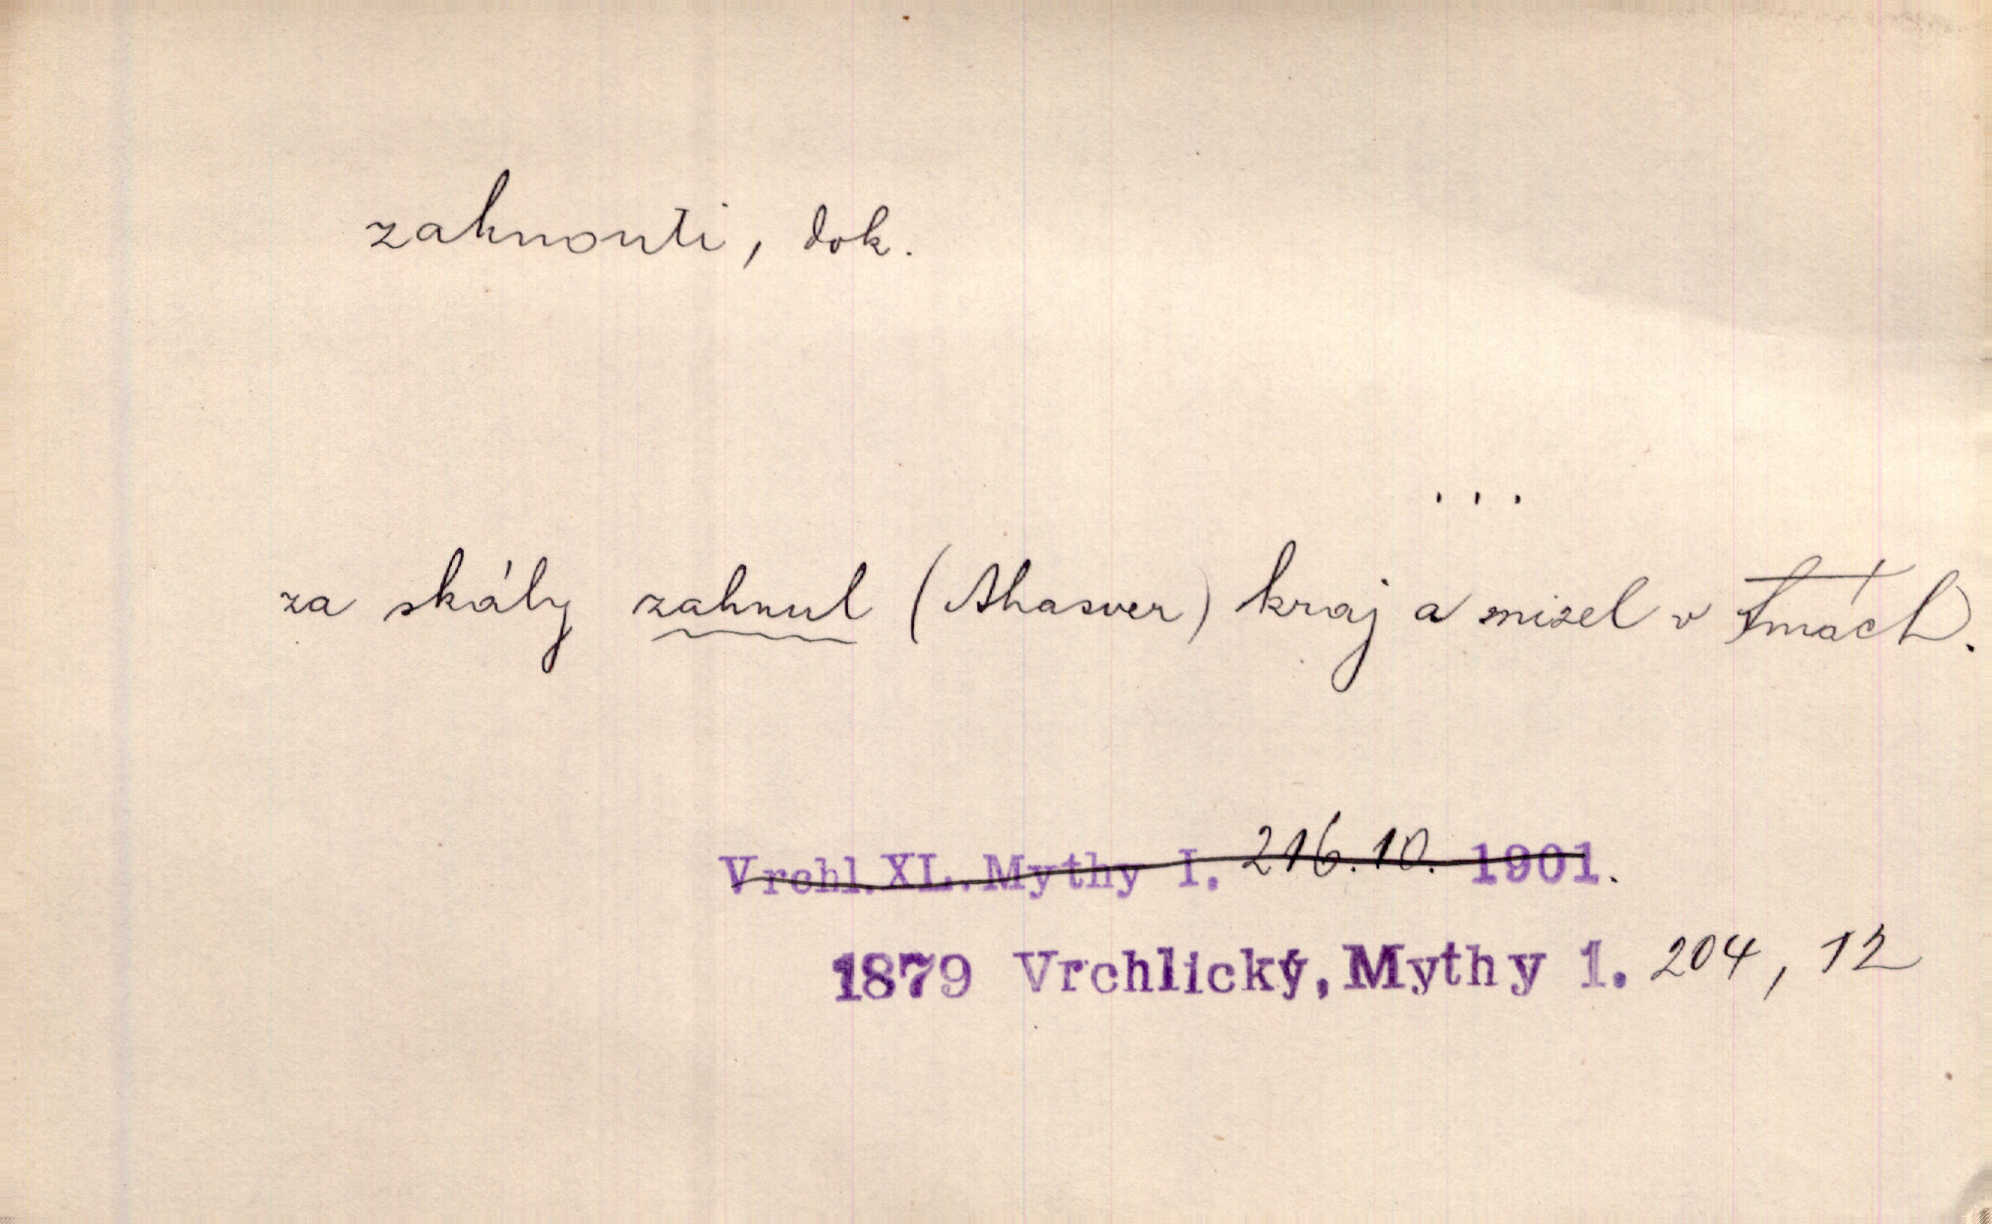 zahnouti, dok.
...
za skály zahnul (Ahasver) kraj a mizel v tmách.
Vrchl. XL. Mythy I. 216.10. 1901.
1879 Vrchlický, Mythy 1. 204, 12